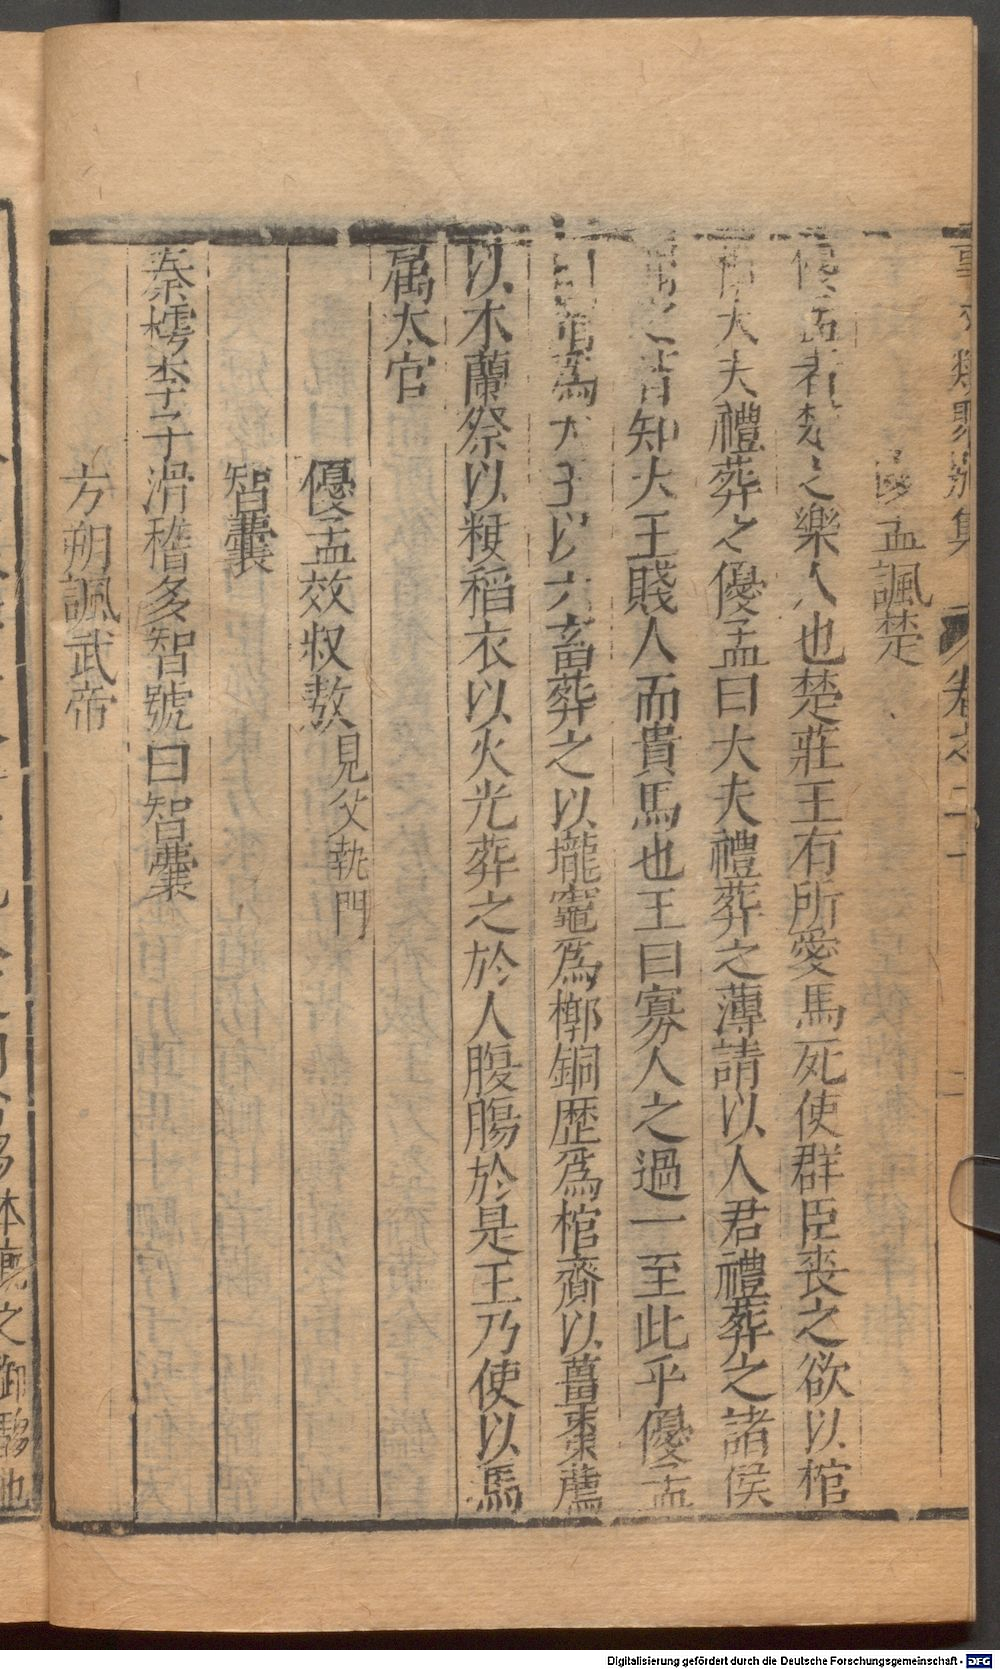 事文類聚別集 卷之二十
優孟諷楚
優孟者楚之樂人也楚莊王有所愛馬死使群臣喪之欲以棺
槨大夫禮葬之優孟曰大夫禮葬之薄請以人君禮葬之諸侯
聞之皆知大王賤人而貴馬也王曰寡人之過一至此乎優孟
曰請為大王以六畜葬之以壠竈爲槨銅歷爲棺齎以薑棗薦
以木蘭祭以粳稻衣以火光葬之於人腹腸於是王乃使以馬
屬太官
優孟效叔敖見父執門
智囊
秦樗李子滑稽多智號曰智囊
方朔諷武帝
体廐之御騶也
Digitalisierung gefördert durch die Deutsche Forschungsgemeinschaft - DFG